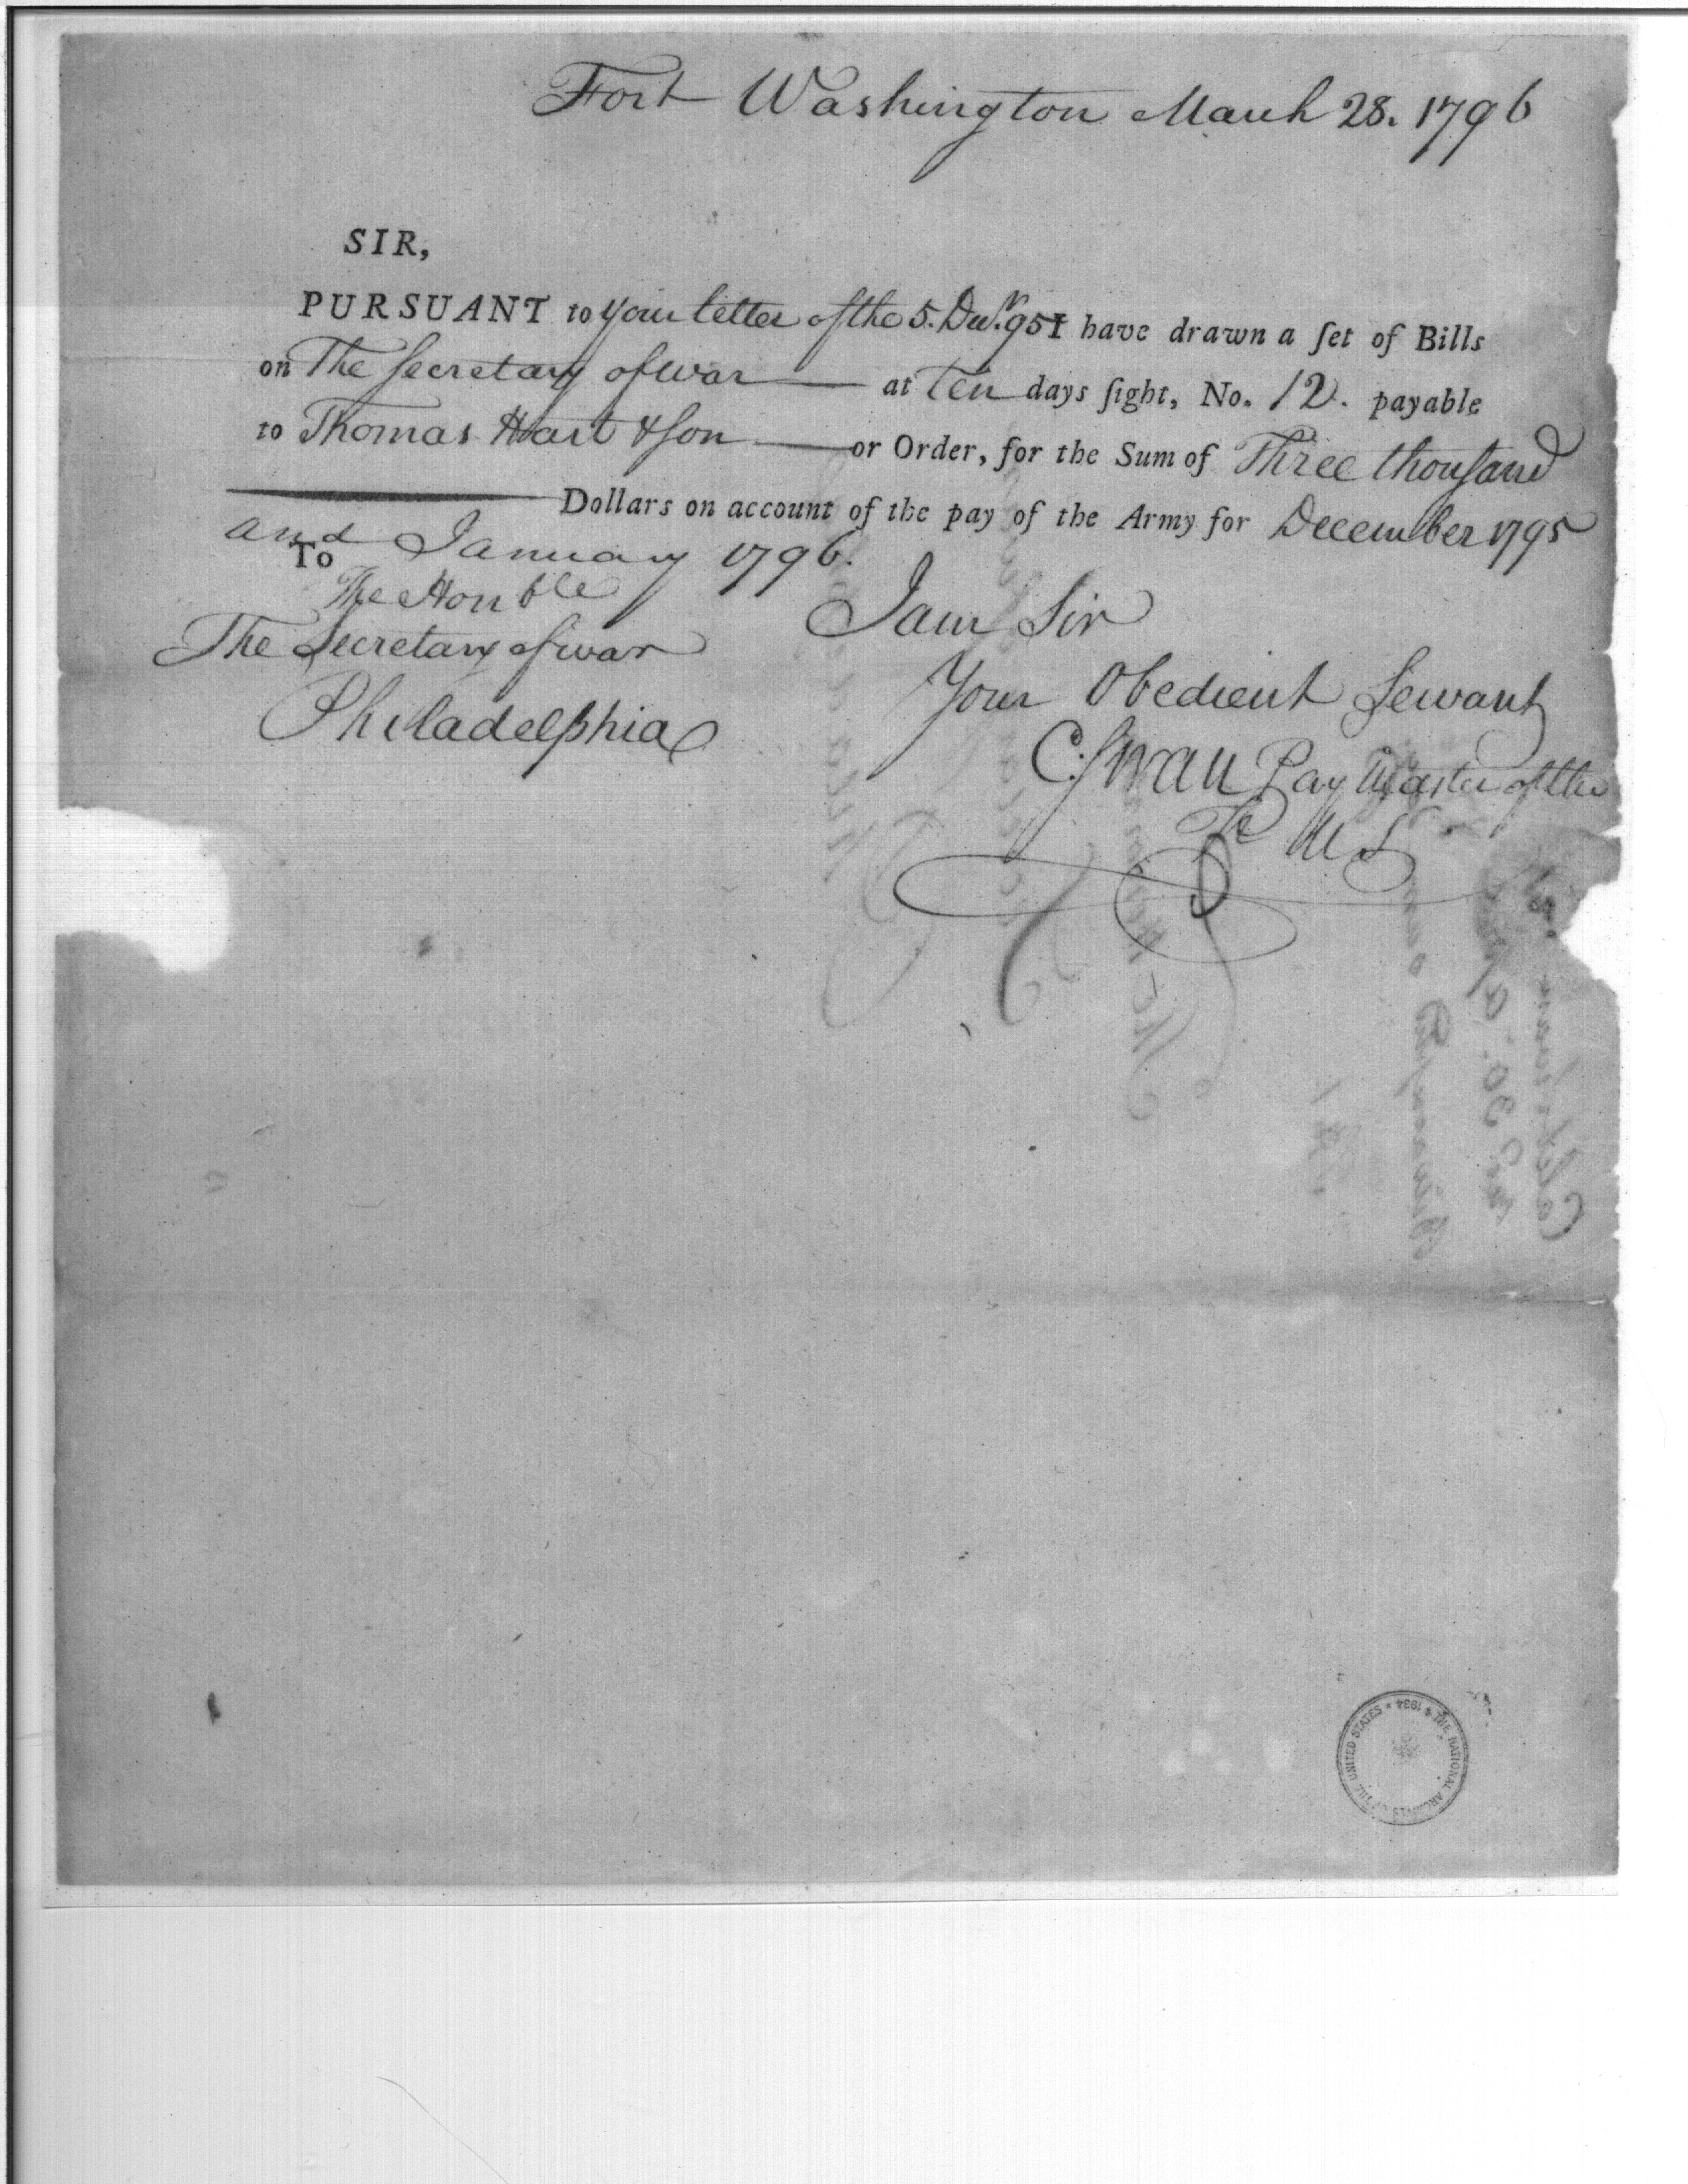 Fort Washington March 28. 1796
SIR,
PURSUANT to your letter of the 5. Decr. 95 I have drawn a ſet of Bills
on The Secretary of war — at Ten days ſight, No. 12. payable
to Thomas Hart & Son — or Order, for the Sum of Three thouſand
— Dollars on account of the pay of the Army for December 1795
and January 1796.
To
The Honble
The Secretary of war
Philadelphia
I am Sir
Your Obedient Servant
C. Swan Pay Master of the
U S
THE NATIONAL ARCHIVES OF THE UNITED STATES * 1934 *